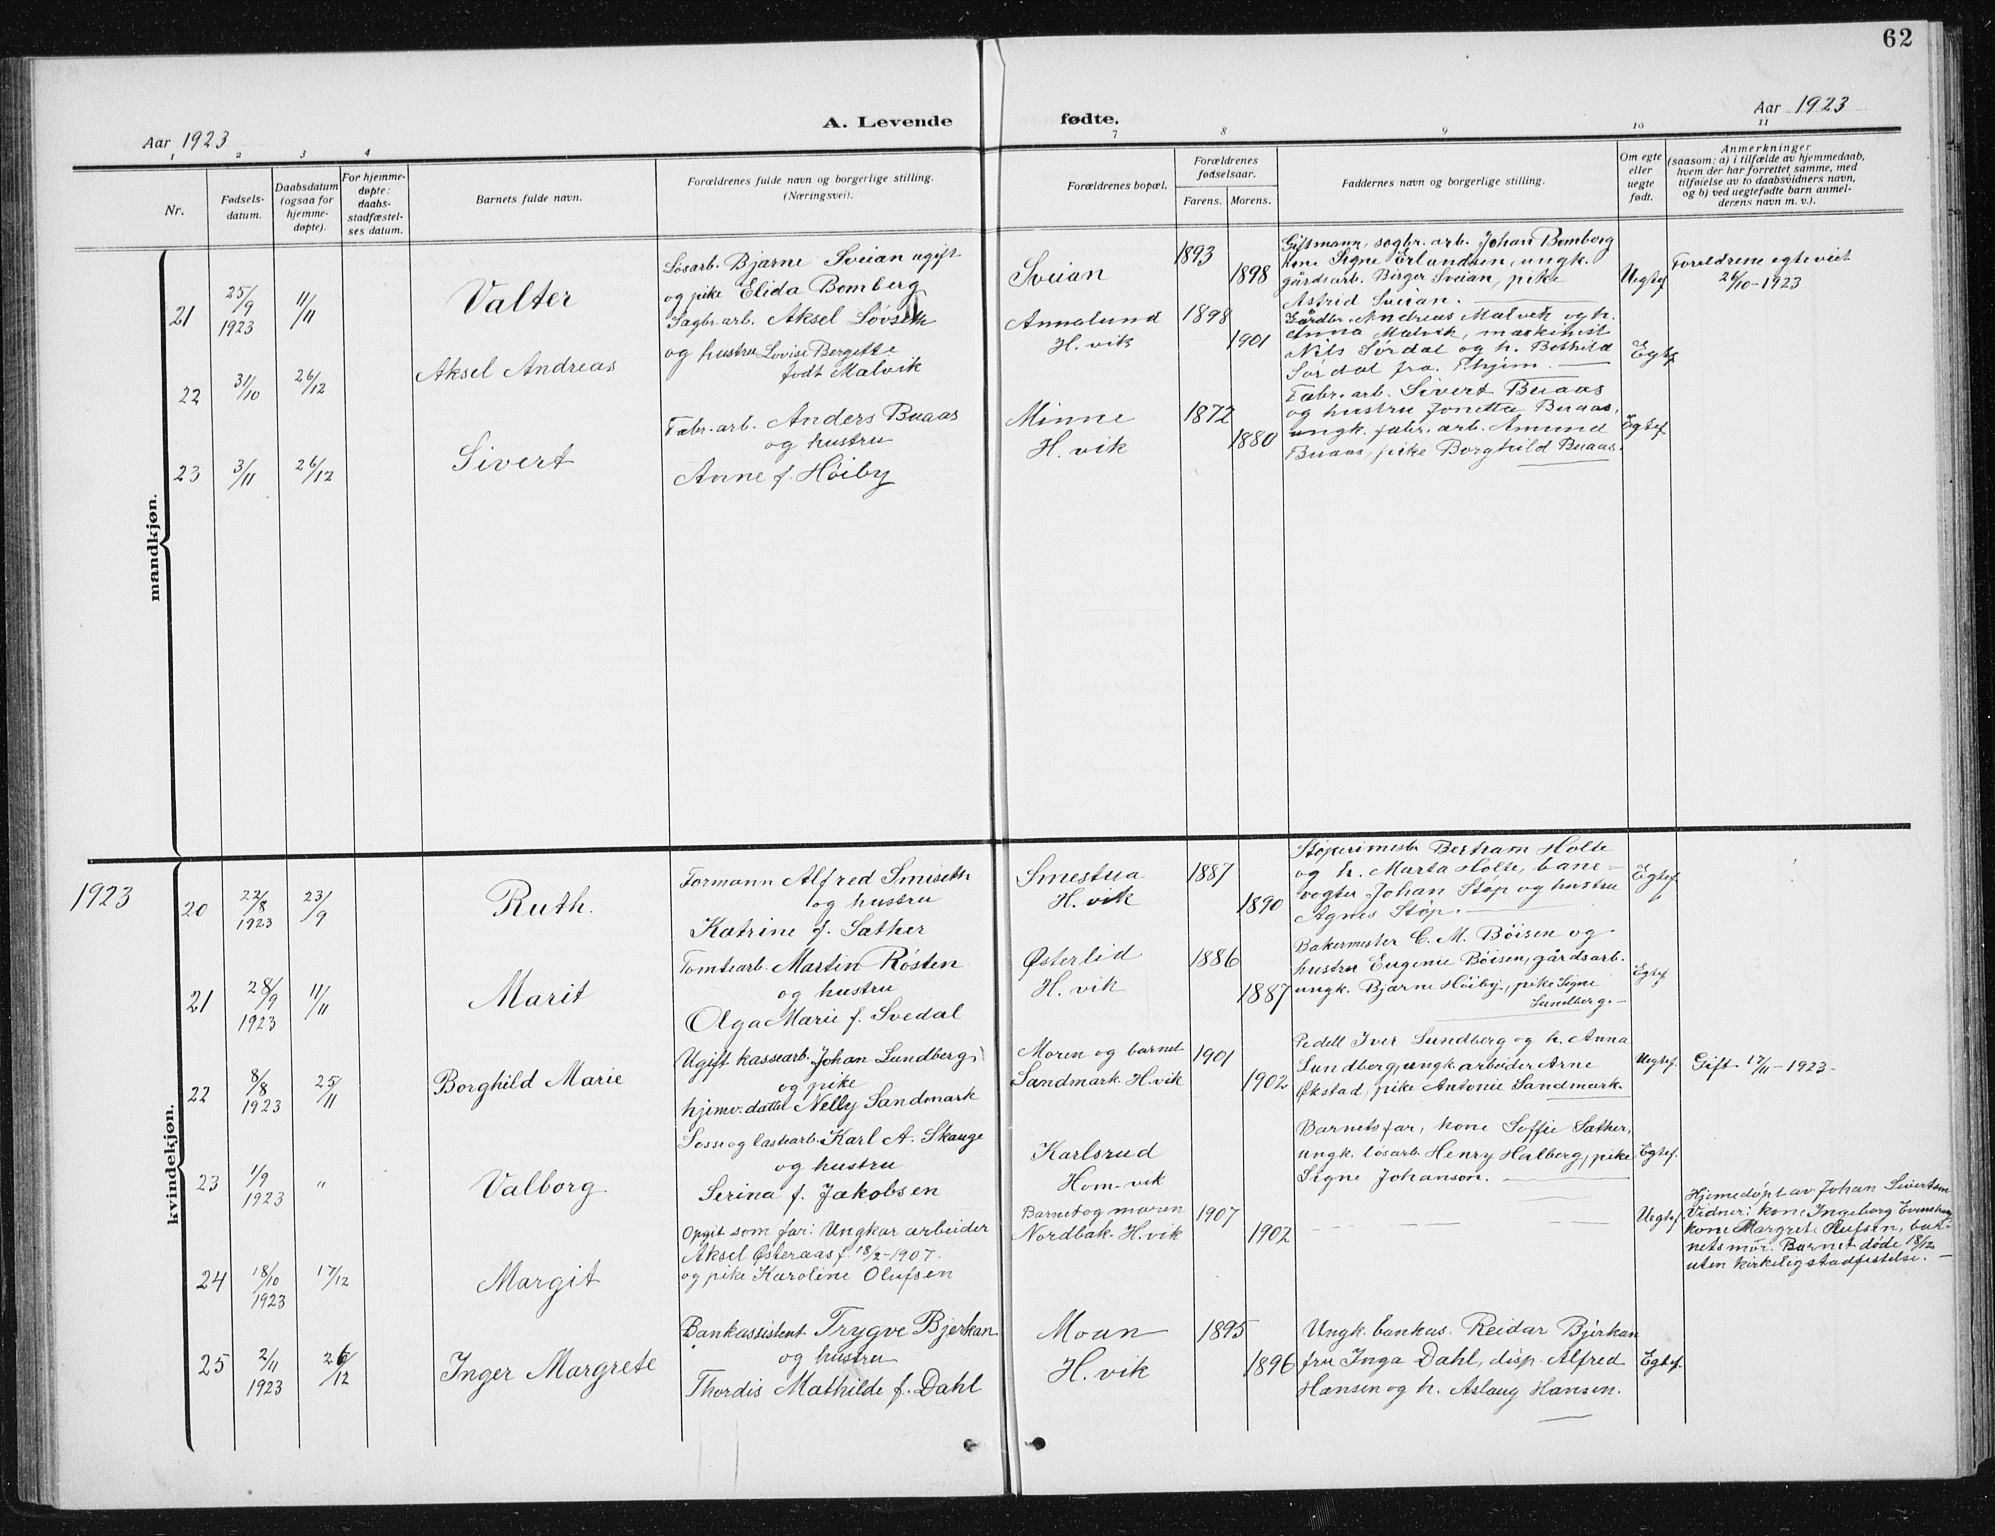 62
Aar 1923
A. Levende
fødte.
Aar 1923
1 2 3 4 7 8 9 10 11
Nr.
Fødsels-
datum.
Daabsdatum
(ogsaa for
hjemme-
døpte).
For hjemme-
døpte:
daabs-
stadfæstel-
ses datum.
Barnets fulde navn.
Forældrenes fulde navn og borgerlige stilling.
(Næringsvei).
Forældrenes bopæl.
Forældrenes
fødselsaar.
Farens. Morens.
Faddernes navn og borgerlige stilling.
Om egte
eller
uegte
født.
Anmerkninger
(saasom: a) i tilfælde av hjemmedaab,
hvem der har forrettet samme, med
tilføielse av to daabsvidners navn,
og b) ved uegtefødte barn anmel-
derens navn m. v.).
mandkjøn.
21
25/9
1923
11/11
Valter
Løsarb. Bjarne Sveian ugift
og pike Elida Bomberg
Sveian
1893
1898
Giftmann, sagbr. arb. Johan Bomberg
kone Signe Erlandsen, ungk.
gårdsarb. Birger Sveian, pike
Astrid Sveian.
Uegtef
Foreldrene egteviet
26/10-1923
22
31/10
26/12
Aksel Andreas
Sagbr. arb. Aksel Løvseth
og hustru Lovise Bergitte
født Malvik
Annalund
H. vik
1898
1901
Gårdbr. Andreas Malvik og h.
Anna Malvik, maskinist
Nils Sørdal og h. Bothild
Sørdal fra Thjem.
Egtef
23
3/11
26/12
Sivert
Fabr. arb. Anders Buaas
og hustru
Anne f. Høiby
Minne
H. vik
1872
1880
Fabr. arb. Sivert Buaas
og hustru Jonetta Buaas,
ungk. fabr. arb. Amund
Buaas, pike Borghild Buaas.
Egtef
1923
kvindekjøn.
20
22/8
1923
23/9
Ruth.
Formann Alfred Smiseth
og hustru
Katrine f. Sæther
Smestua
H. vik
1887
1890
Støperimestr Bertram Holte
og h. Marta Holte, bane-
vogter Johan Støp og hustru
Agnes Støp.
Egtef
21
28/9
1923
11/11
Marit
Tomtearb. Martin Røsten
og hustru
Olga Marie f. Svedal
Østerlid
H. vik
1886
1887
Bakermester C. M. Bøisen og
hustru Eugenie Bøisen, gårdsarb.
ungk. Bjarne Høiby, pike Signe
Lundberg.
Egtef
22
8/8
1923
25/11
Borghild Marie
Ugift kassearb. Johan Lundberg
og pike
hjemv. datter Nelly Sandmark
Moren og barnet
Sandmark H. vik
1901
1902
Pedell Iver Lundberg og h. Anna
Lundberg, ungk. arbeider Arne
Økstad, pike Antonie Sandmark.
Uegtef.
Gift 17/11-1923
23
1/9
1923
"
Valborg
Losse og lastearb. Karl A. Skauge
og hustru
Serina f. Jakobsen
Karlsrud
Hom-vik
Barnets far, kone Soffie Sæther,
ungk. løsarb. Henry Halberg, pike
Signe Johanson.
Egtef.
24
18/10
1923
17/12
Margit
Opgit som far: Ungkar arbeider
Aksel Østeraas f. 18/2-1907.
og pike Karoline Olufsen
Barnet og moren
Nordbak. H. vik
1907
1902
Uegtef.
Hjemedøpt av Johan Sivertsen
Vidner: kone Ingeborg
kone Margret Olufsen, bar-
nets mor. Barnet døde 18/12
uten kirkelig stadfestelse.
25
2/11
1923
26/12
Inger Margrete
Bankassistent Trygve Bjerkan
og hustru
Thordis Mathilde f. Dahl
Moan
H. vik
1895
1896
Ungk. bankas. Reidar Bjerkan
fru Inga Dahl, disp. Alfred
Hansen og h. Aslaug Hansen.
Egtef.